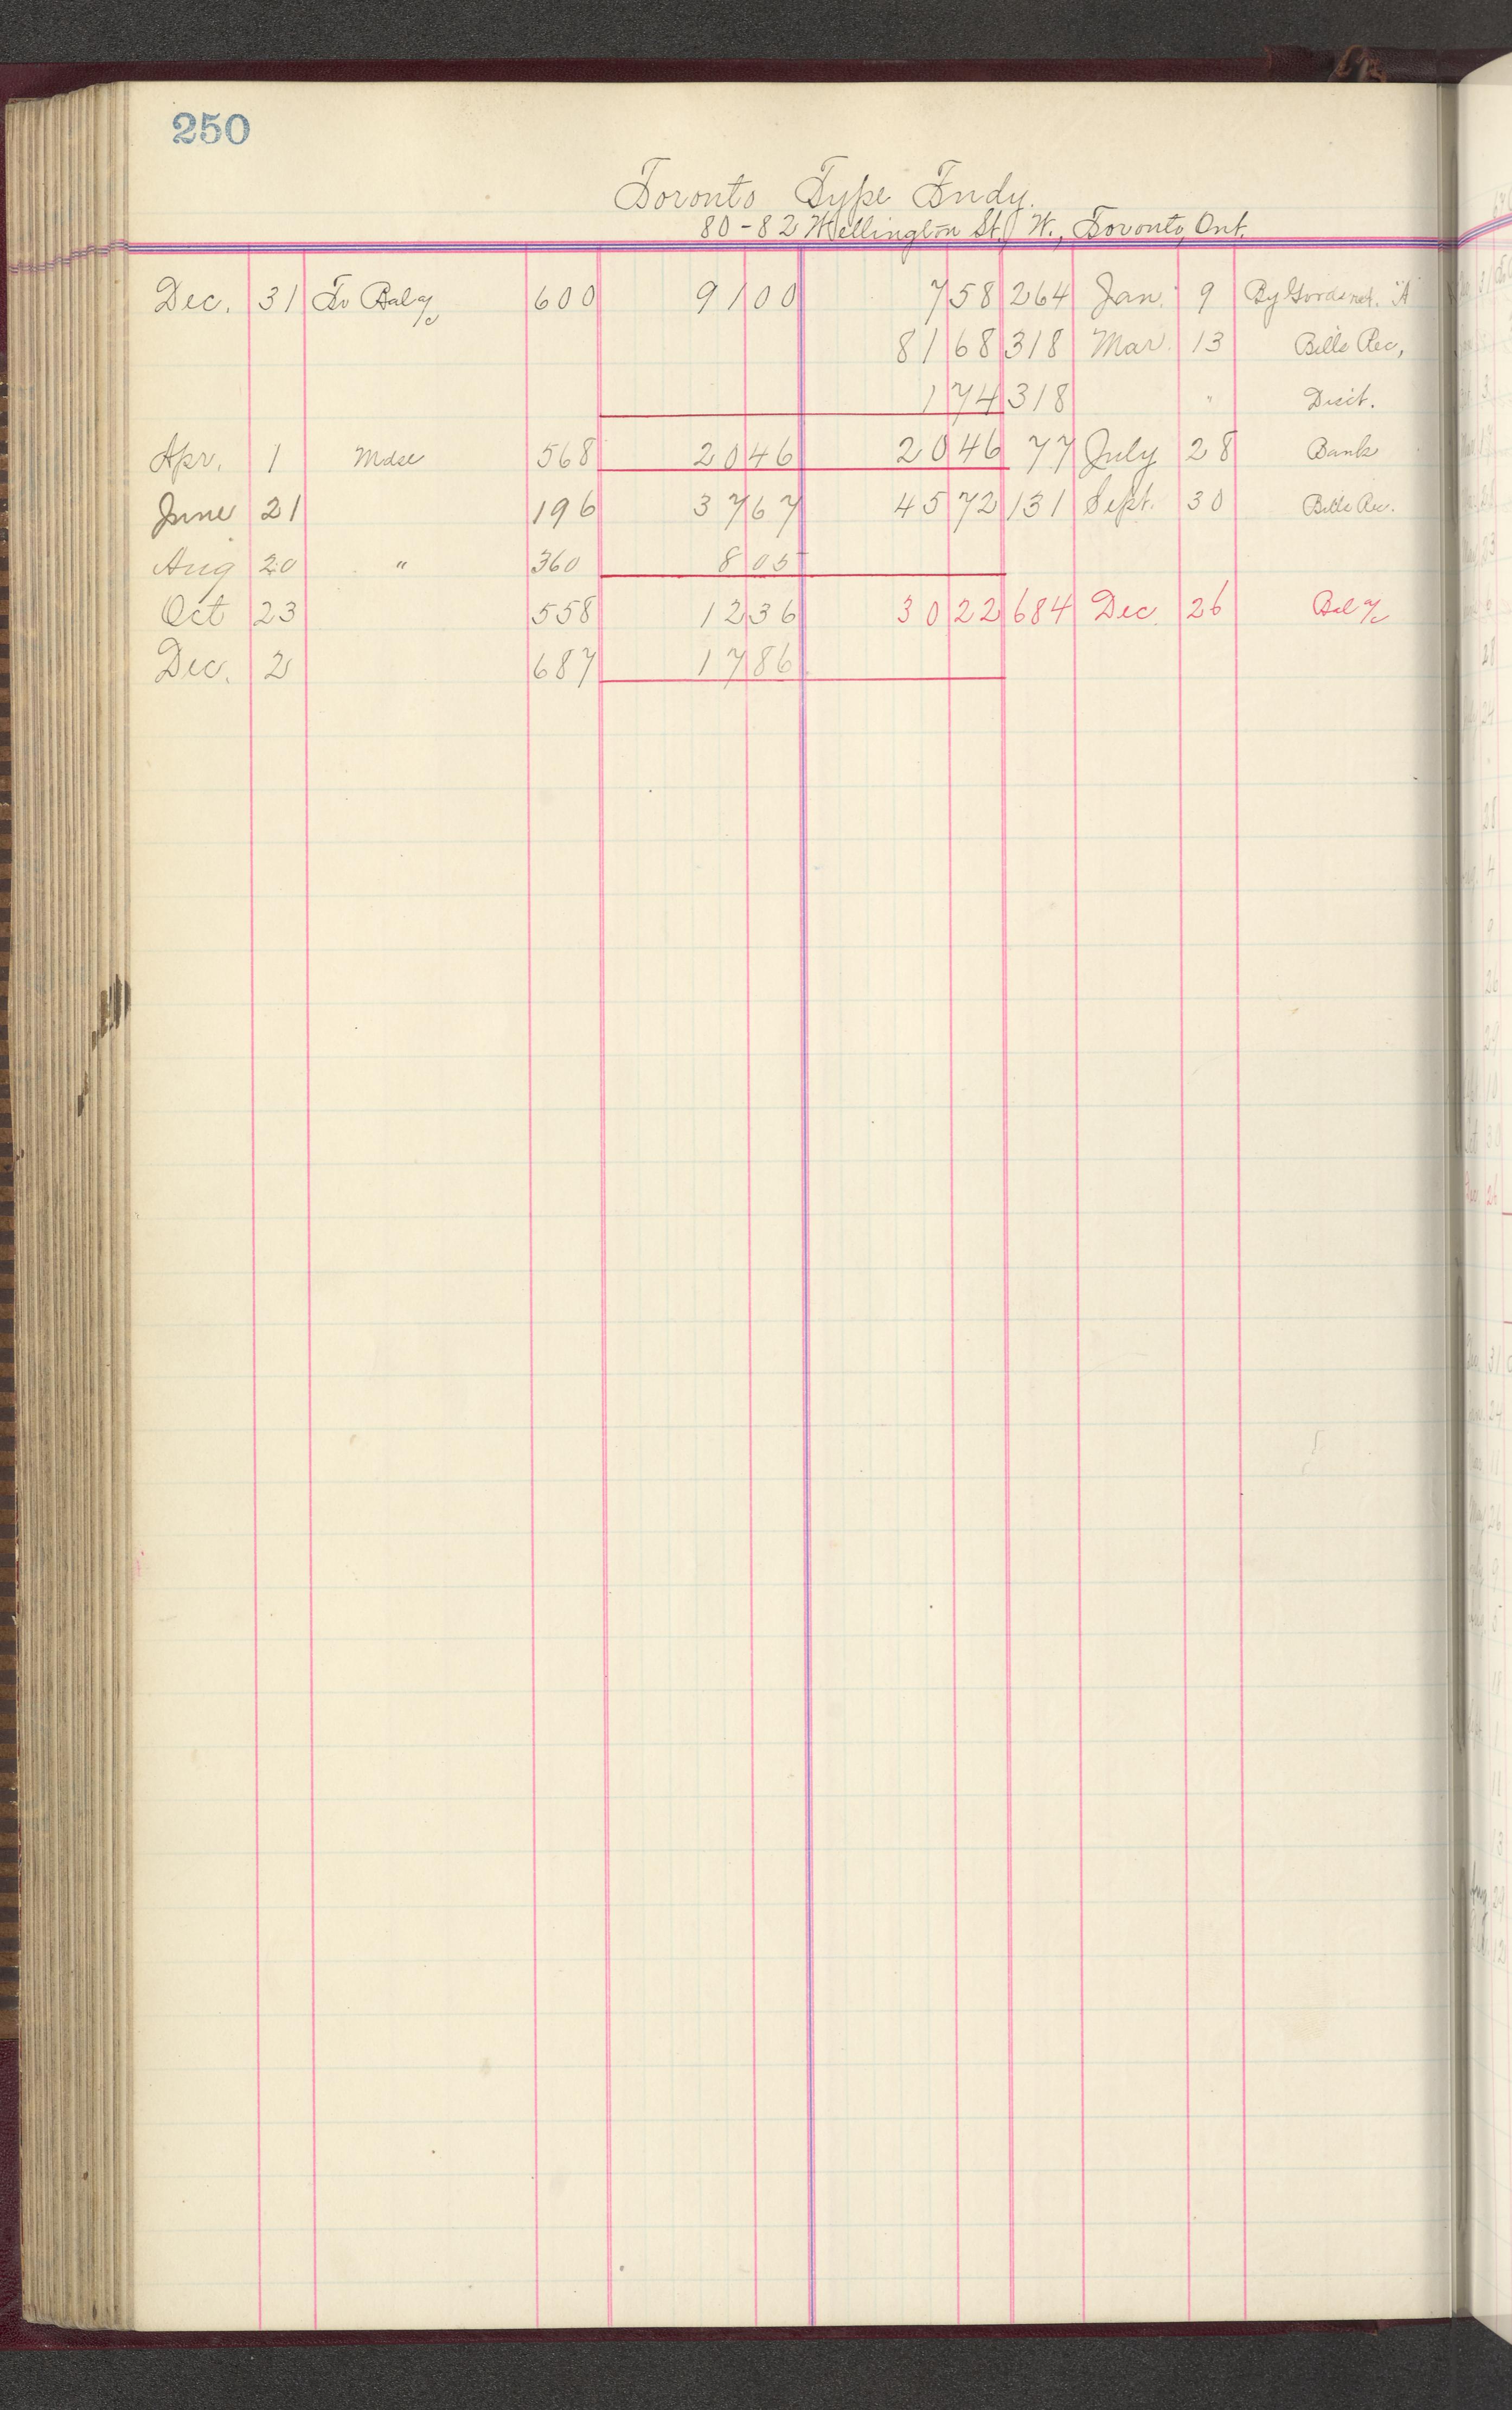 250
Toronto Type Fndy.
80-82 Wellington St. W., Toronto, Ont.
Dec. 31 To Bal a/c 600 91 00 7 58 264 Jan. 9 By Goods ret. "A"
81 68 318 Mar. 13 Bills Rec,
1 74 318 " Disct.
Apr. 1 Mdse 568 20 46 20 46 77 July 28 Bank
June 21 196 37 67 45 72 131 Sept. 30 Bills Rec.
Aug 20 " 360 8 05
Oct 23 558 12 36 30 22 684 Dec. 26 Bal a/c
Dec. 2 687 17 86